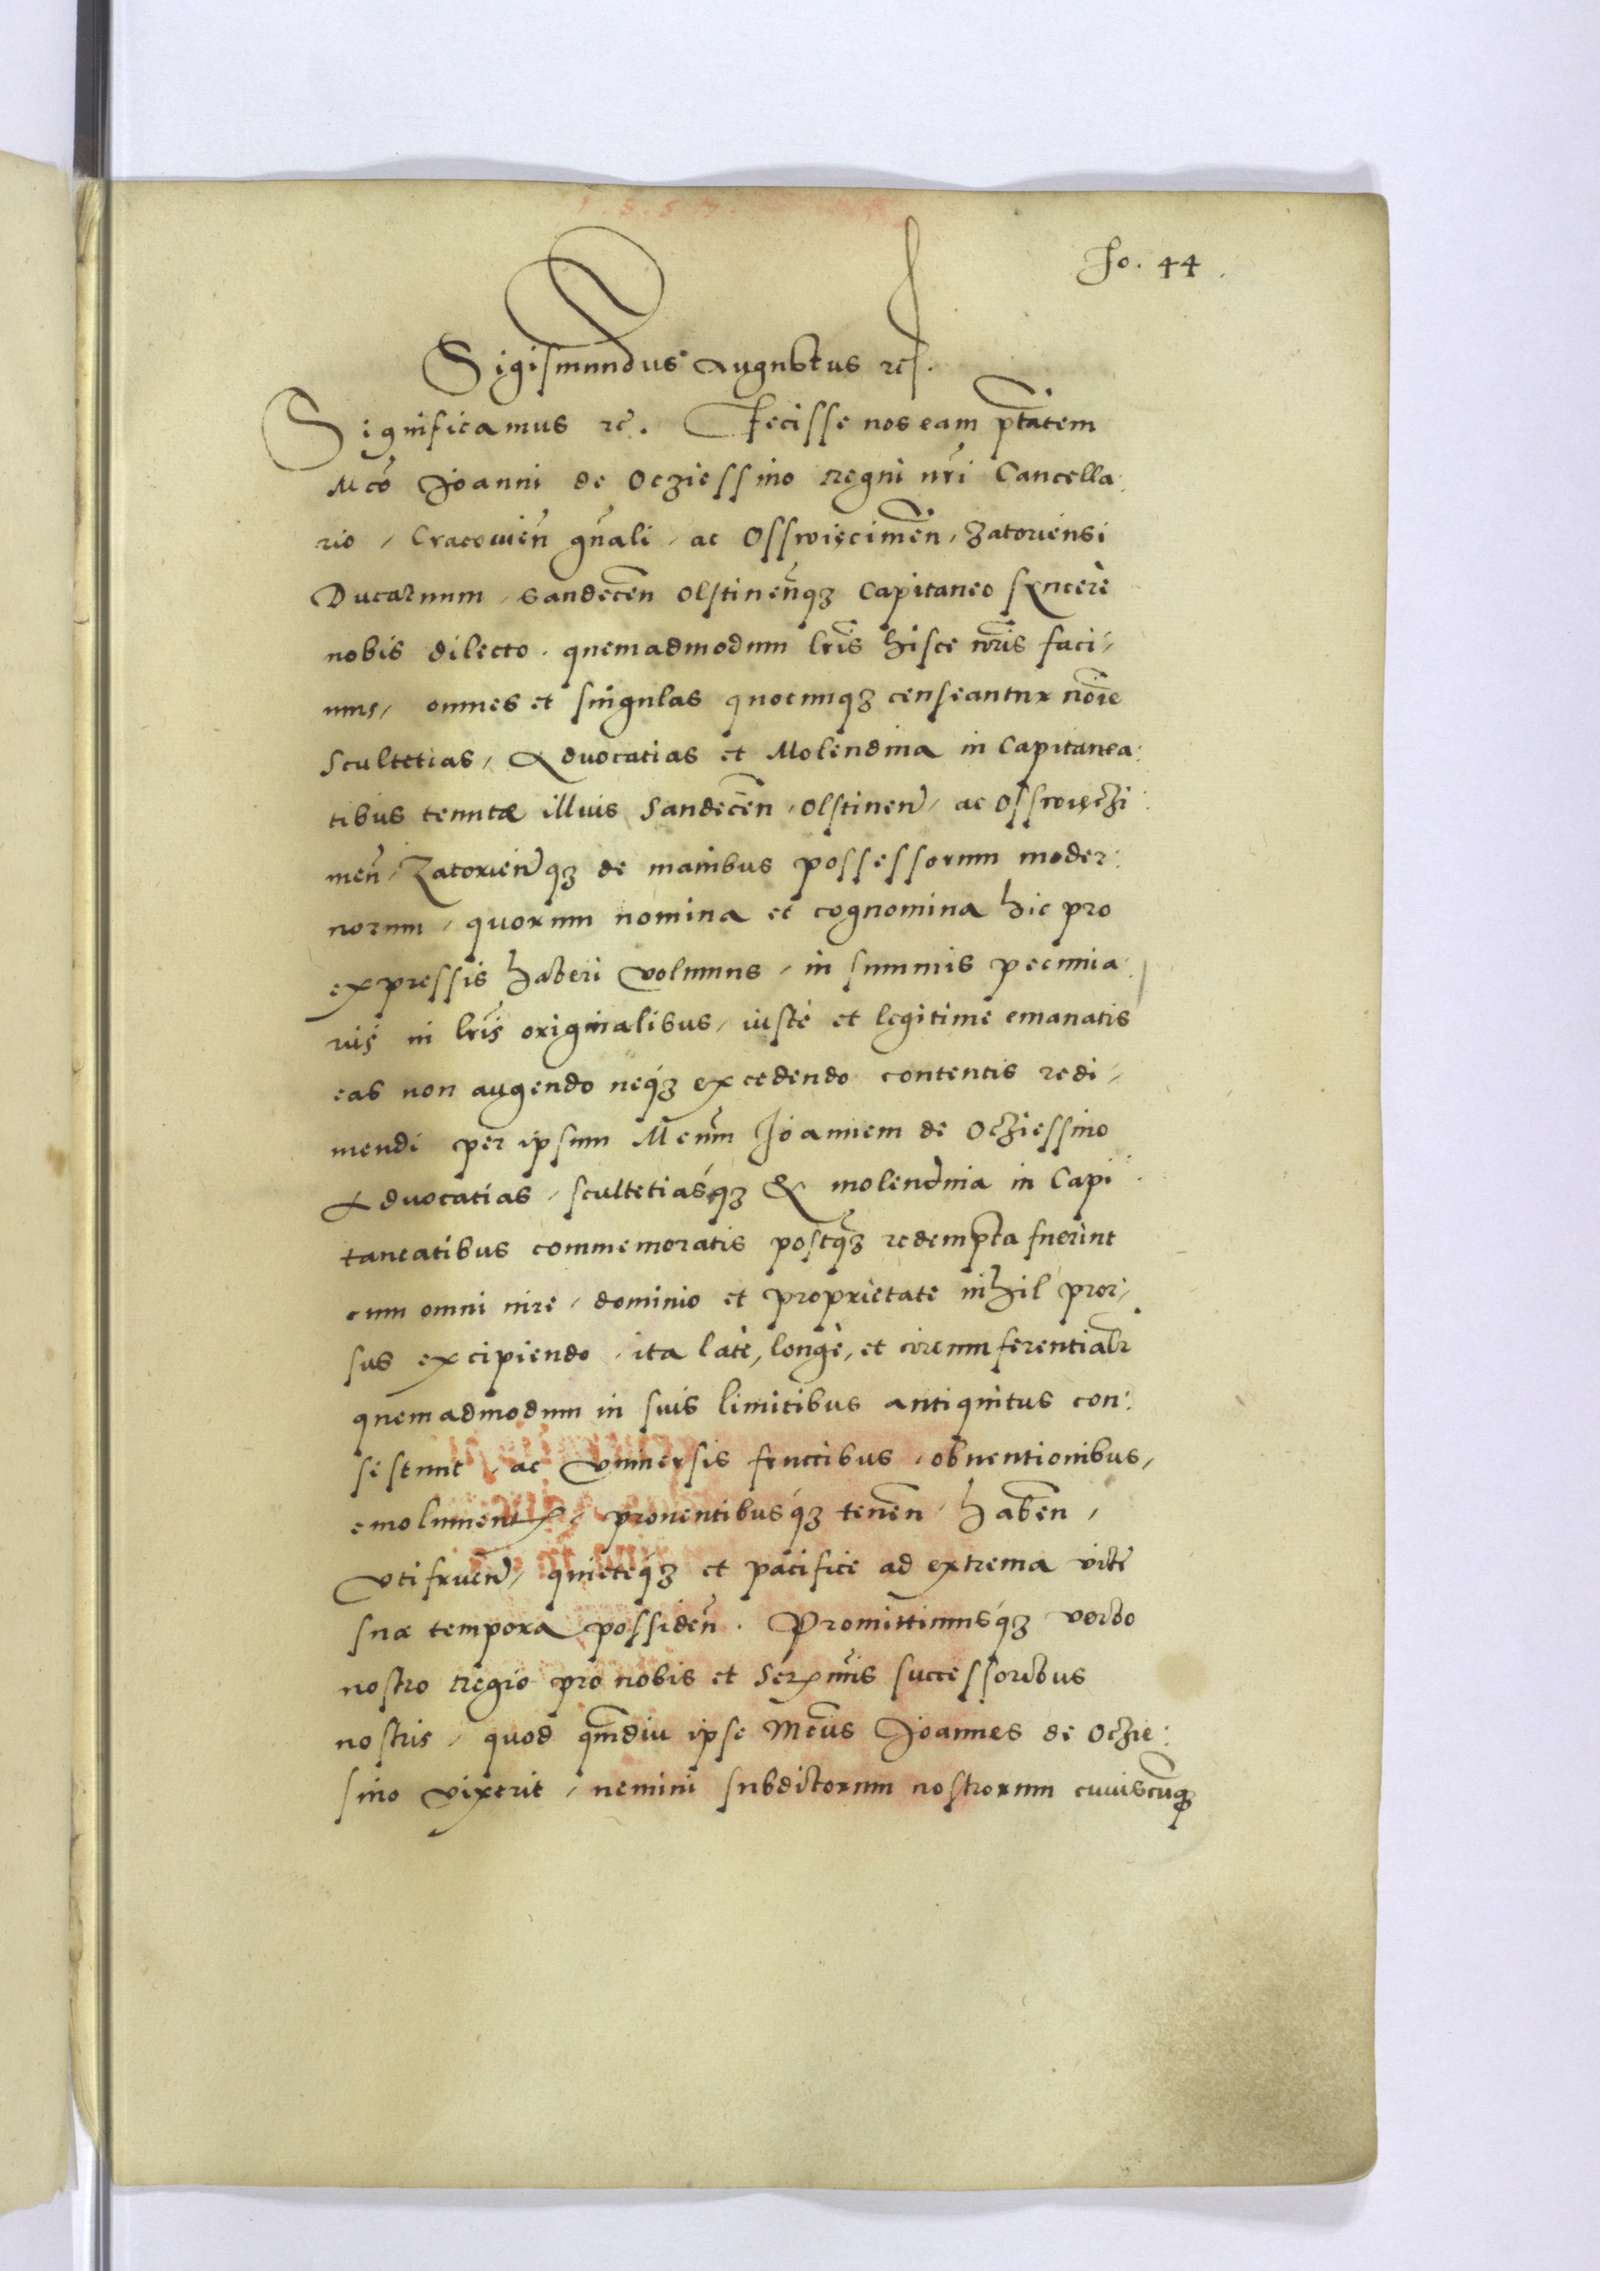 fo. 44.
Sigismundus Augustus rc.
Significamus rc. Fecisse nos eam ptātem
Mco Joanni de Ocziessino Regni nri Cancella:
rio, Cracovien gnali, ac Osswięcimen, Zatoriensi
Ducatuum, Sandecen Olstinenq3 Capitaneo syncere
nobis dilecto. quemadmodum lris hisce nris faci-
mus, omnes et singulas quocunq3 censeantur noie
Scultetias, Advocatias et Molendina in Capitanea:
tibus tenutæ illius Sandecen, Olstinen, ac Osswięczi:
men, Zatorienq3 de manibus possessorum moder:
norum, quorum nomina et cognomina hic pro
expressis haberi volumus, in summis pecunia:
riis in lris originalibus, iuste et legitime emanatis
eas non augendo neq3 excedendo contentis redi-
mendi per ipsum Mcum Joannem de Ocziessino
Advocatias, scultetiasq3 & molendina in Capi:
taneatibus commemoratis postq3 redempta fuerint
cum omni iure, dominio et proprietate nihil pror-
sus excipiendo, ita late, longe, et circumferentialr
quemadmodum in suis limitibus antiquitus con:
sistunt, ac Universis fructibus, obventionibus,
emolument, proventibusq3 tenen, haben,
Utifruen, quieteq3 et pacifice ad extrema vitæ
suæ tempora possiden. Promittimusq3 verbo
nostro regio pro nobis et Sermis successoribus
nostris, quod qmdiu ipse Mcus Joannes de Oczie:
sino vixerit, nemini subditorum nostrorum cuiuscunq3